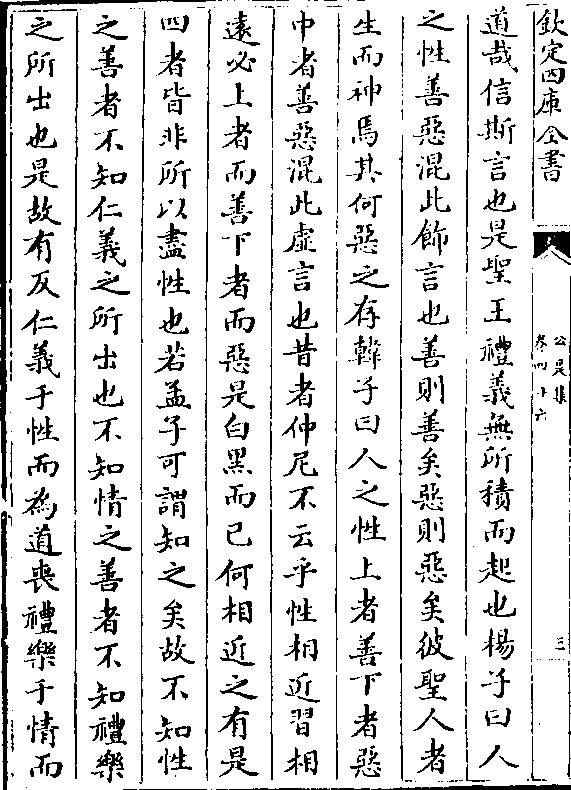 欽定四庫全書
公是集
卷四十六
三
道哉信斯言也是聖王禮義無所積而起也楊子曰人
之性善惡混此飾言也善則善矣惡則惡矣彼聖人者
生而神焉其何惡之存韓子曰人之性上者善下者惡
中者善惡混此虛言也昔者仲尼不云乎性相近習相
遠必上者而善下者而惡是白黑而已何相近之有是
四者皆非所以盡性也若孟子可謂知之矣故不知性
之善者不知仁義之所出也不知情之善者不知禮樂
之所出也是故有反仁義于性而為道喪禮樂于情而